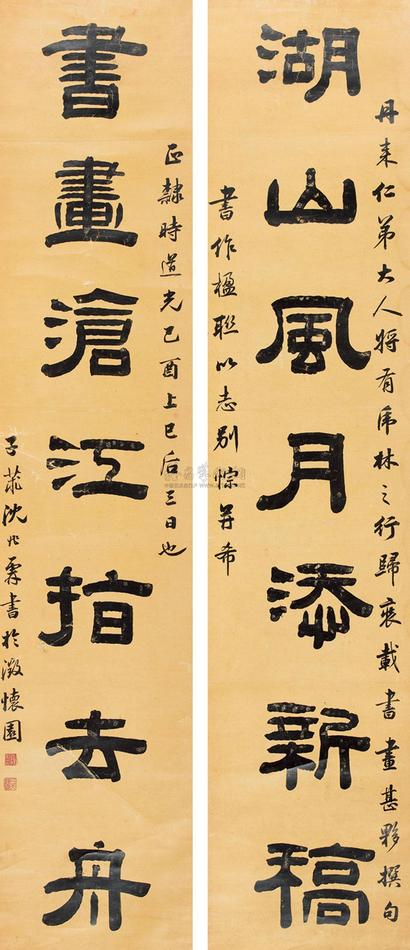 丹来仁弟大人将有虎林之行歸裝載書畫甚夥撰句
湖山風月添新稿
書作楹聯以志别悰并希
正隸時道光己酉上巳后三日也
書畫滄江指去舟
沈兆霖書於澂懷園